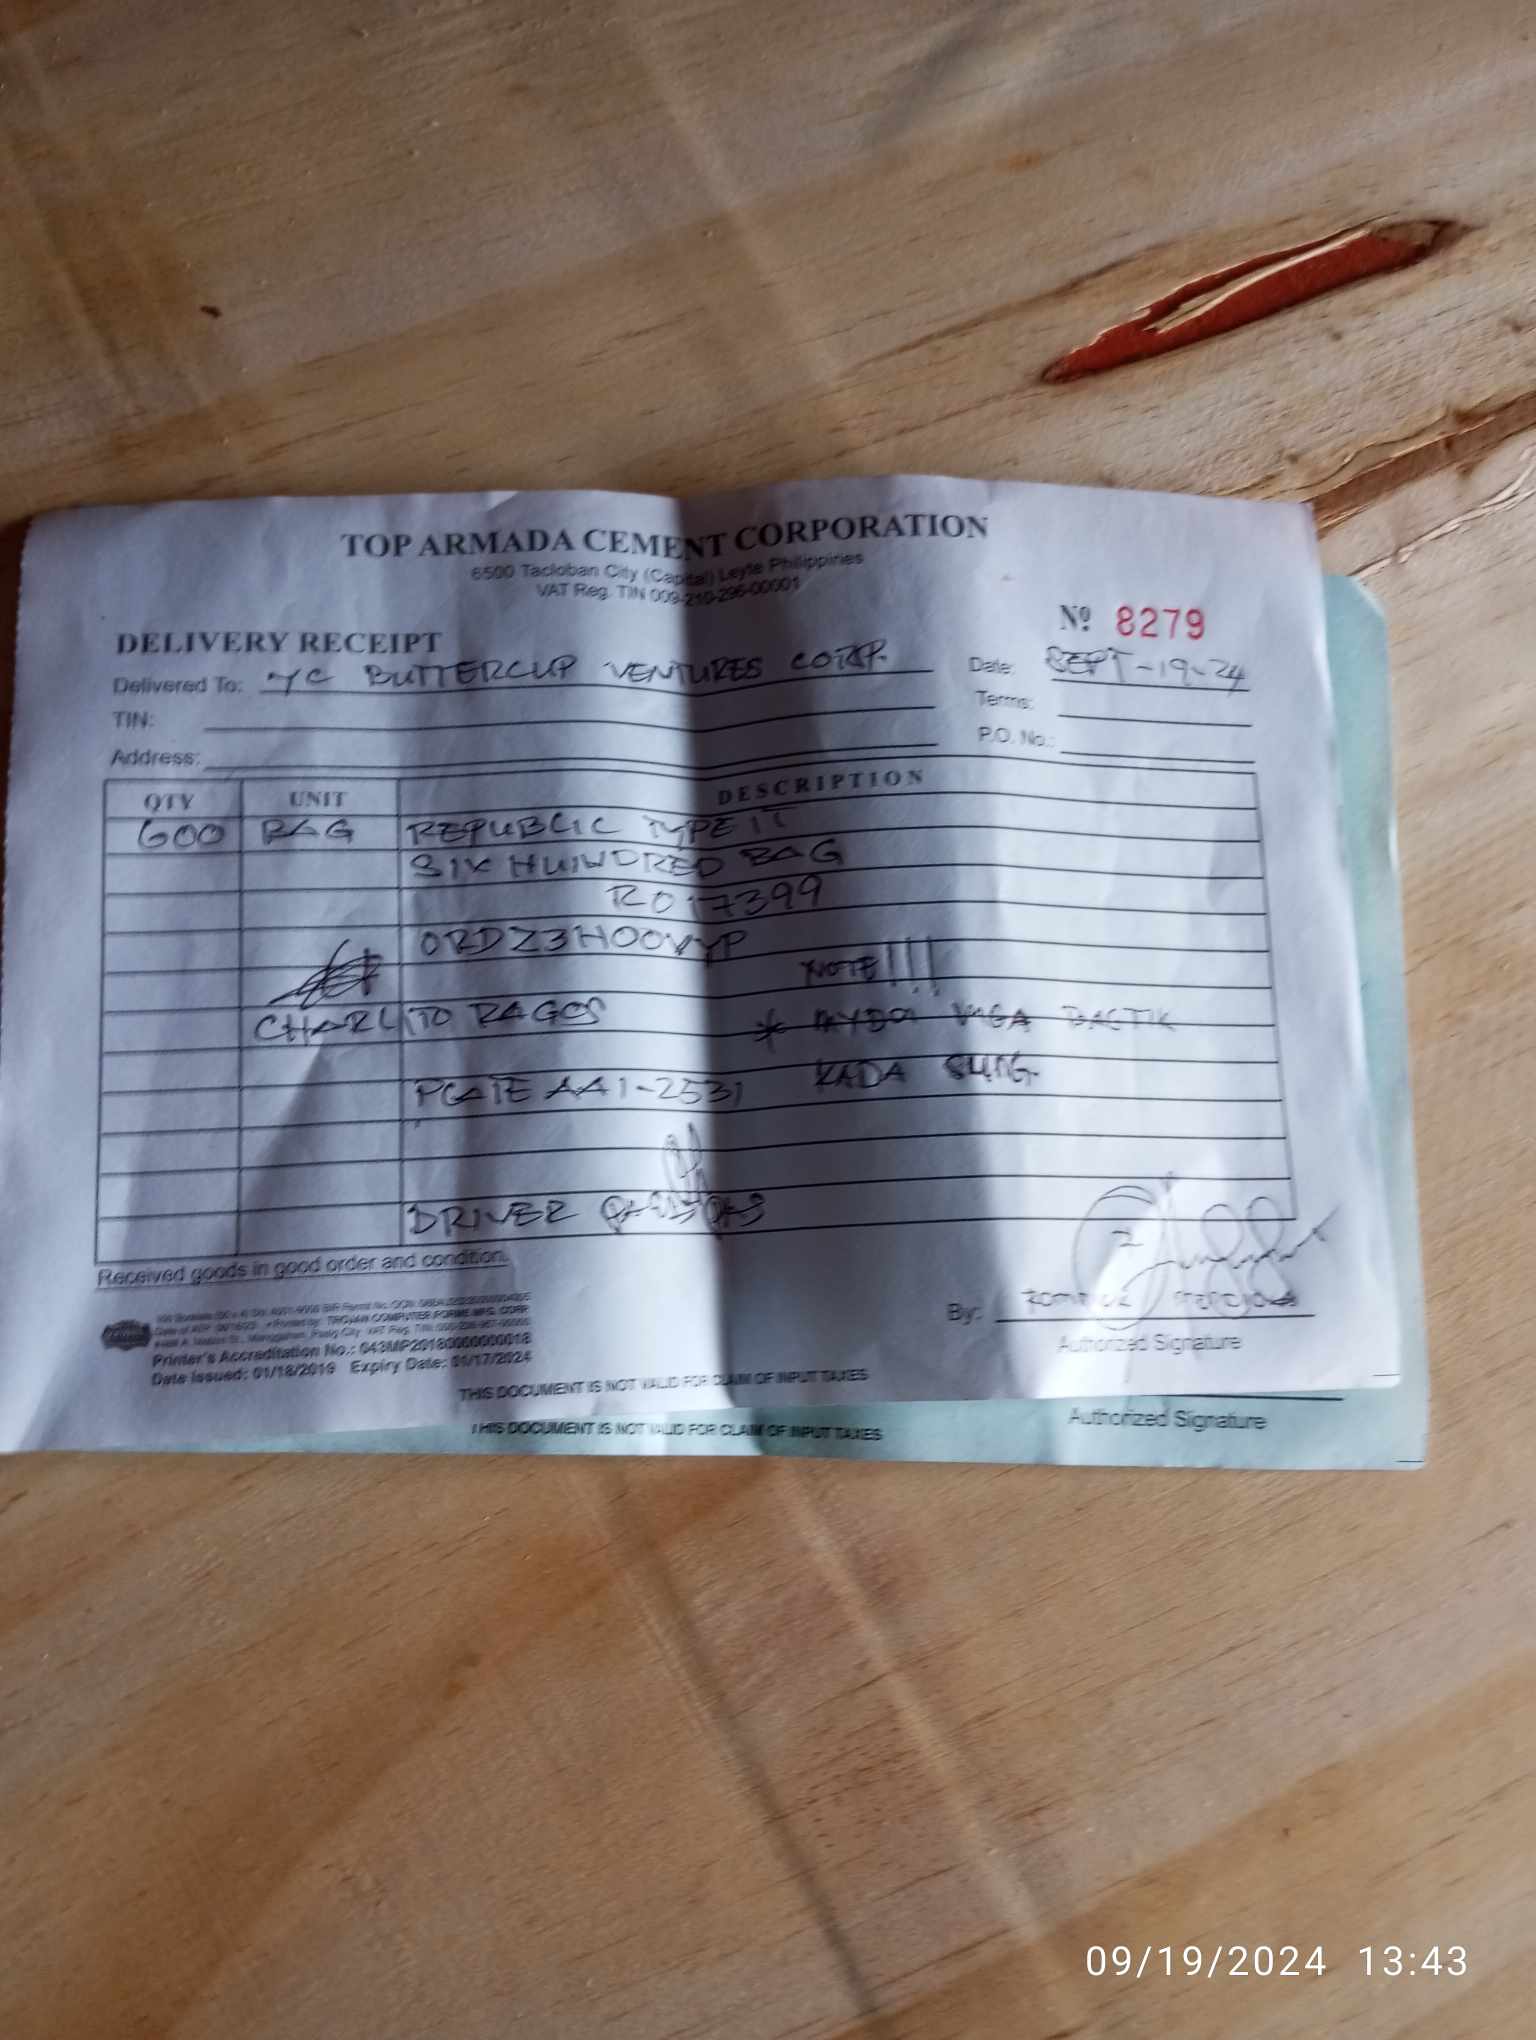 TOP ARMADA CEMENT CORPORATION
6500 Tacloban City (Capital) Leyte Philippines
VAT Reg. TIN 009-210-296-00001
Nº 8279
DELIVERY RECEIPT
Delivered To: YC BUTTERCUP VENTURES CORP.
Date: SEPT-19-24
TIN:
Terms:
Address:
P.O. No.:
QTY UNIT DESCRIPTION
600 BAG REPUBLIC TYPE 1T
SIX HUNDRED BAG
RO17399
ORDZ3HOOVYP
NOTE!!!
CHARLITO RAGOS
* MAYDA MGA BACTIK
PLATE AA1-2531
KADA SLING.
DRIVER
Received goods in good order and condition.
By:
Authorized Signature
Printer's Accreditation No.: 043MP20180000000018
Date Issued: 01/18/2019 Expiry Date: 01/17/2024
THIS DOCUMENT IS NOT VALID FOR CLAIM OF INPUT TAXES
THIS DOCUMENT IS NOT VALID FOR CLAIM OF INPUT TAXES
Authorized Signature
09/19/2024 13:43